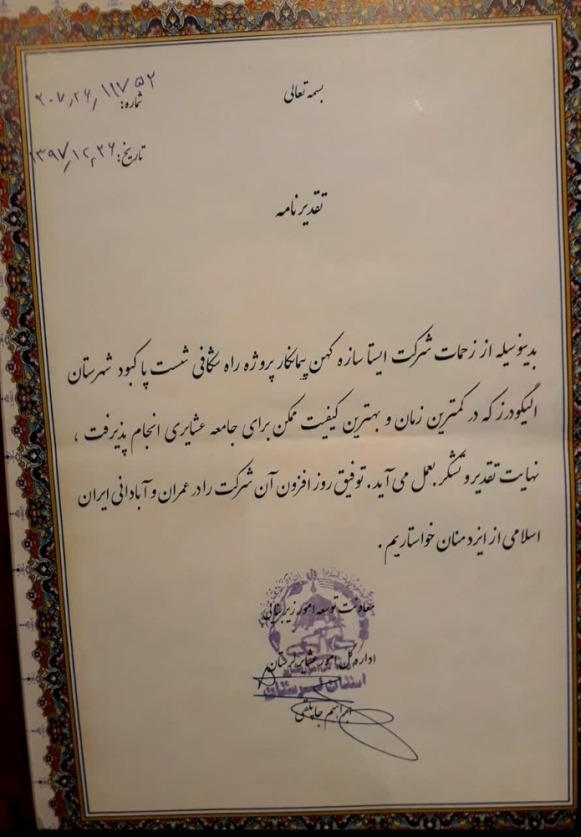 بسمه تعالی
شماره: ۲۰۷٫۲۶٫۱۱۷۵۲
تاریخ: ۱۳۹۷٫۱۲٫۲۶
تقدیرنامه
بدینوسیله از زحمات شرکت ایستا سازه کهن پیمانکار پروژه راه شکافی شست پا کبود شهرستان
الیگودرز که در کمترین زمان و بهترین کیفیت ممکن برای جامعه عشایری انجام پذیرفت ،
نهایت تقدیر و تشکر بعمل می آید . توفیق روز افزون آن شرکت را در عمران و آبادانی ایران
اسلامی از ایزد منان خواستاریم .
معاونت توسعه امور زیربنایی
اداره کل امور عشایر لرستان
استان لرستان